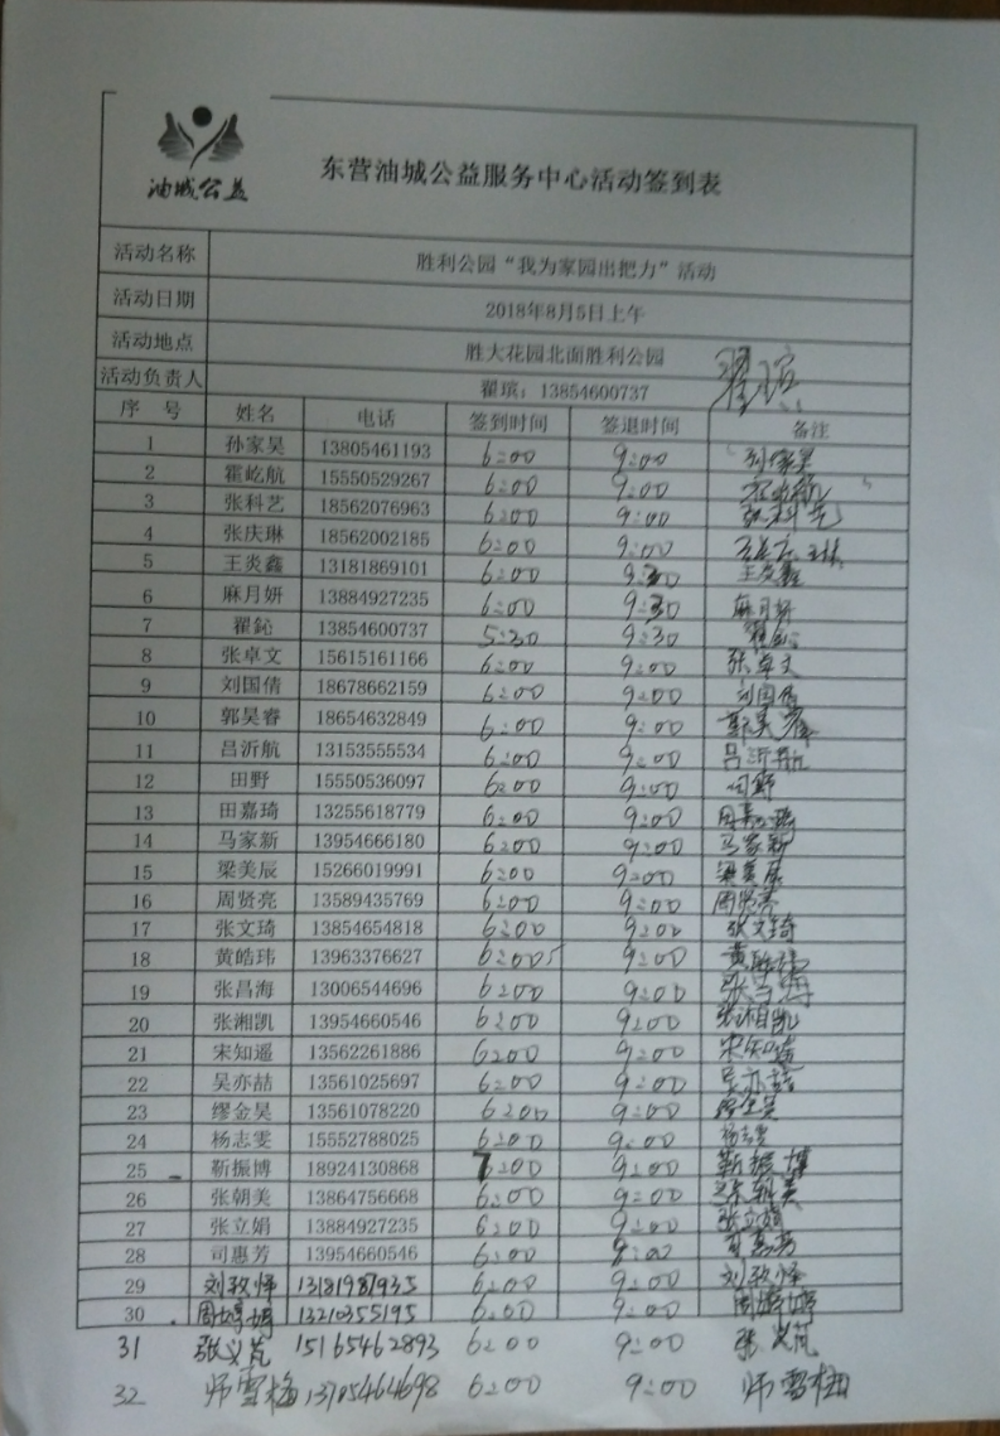 油城公益
东营油城公益服务中心活动签到表
活动名称 胜利公园“我为家园出把力”活动
活动日期 2018年8月5日上午
活动地点 胜大花园北面胜利公园
活动负责人 翟瑸：13854600737
序 号 姓名 电话 签到时间 签退时间 备注
1 孙家昊 13805461193 6:00 9:00 孙家昊
2 霍屹航 15550529267 6:00 9:00 霍屹航
3 张科艺 18562076963 6:00 9:00 张科艺
4 张庆琳 18562002185 6:00 9:00
5 王炎鑫 13181869101 6:00 9:30 王炎鑫
6 麻月妍 13884927235 6:00 9:30 麻月妍
7 翟鈊 13854600737 5:30 9:30 翟鈊
8 张卓文 15615161166 6:00 9:00 张卓文
9 刘国倩 18678662159 6:00 9:00 刘国倩
10 郭昊睿 18654632849 6:00 9:00 郭昊睿
11 吕沂航 13153555534 6:00 9:00 吕沂航
12 田野 15550536097 6:00 9:00 田野
13 田嘉琦 13255618779 6:00 9:00 田嘉琦
14 马家新 13954666180 6:00 9:00 马家新
15 梁美辰 15266019991 6:00 9:00 梁美辰
16 周贤亮 13589435769 6:00 9:00 周贤亮
17 张文琦 13854654818 6:00 9:00 张文琦
18 黄皓玮 13963376627 6:00 9:00 黄皓玮
19 张昌海 13006544696 6:00 9:00 张昌海
20 张湘凯 13954660546 6:00 9:00 张湘凯
21 宋知遥 13562261886 6:00 9:00 宋知遥
22 吴亦喆 13561025697 6:00 9:00 吴亦喆
23 缪金昊 13561078220 6:00 9:00 缪金昊
24 杨志雯 15552788025 6:00 9:00 杨志雯
25 靳振博 18924130868 7:00 9:00 靳振博
26 张朝美 13864756668 6:00 9:00 张朝美
27 张立娟 13884927235 6:00 9:00 张立娟
28 司惠芳 13954660546 6:00 9:00 司惠芳
29 刘致怿 13181987935 6:00 9:00 刘致怿
30 周婷婷 13210355195 6:00 9:00 周婷婷
31 张义芃 15165462893 6:00 9:00 张义芃
32 师雪梅 13705464698 6:00 9:00 师雪梅